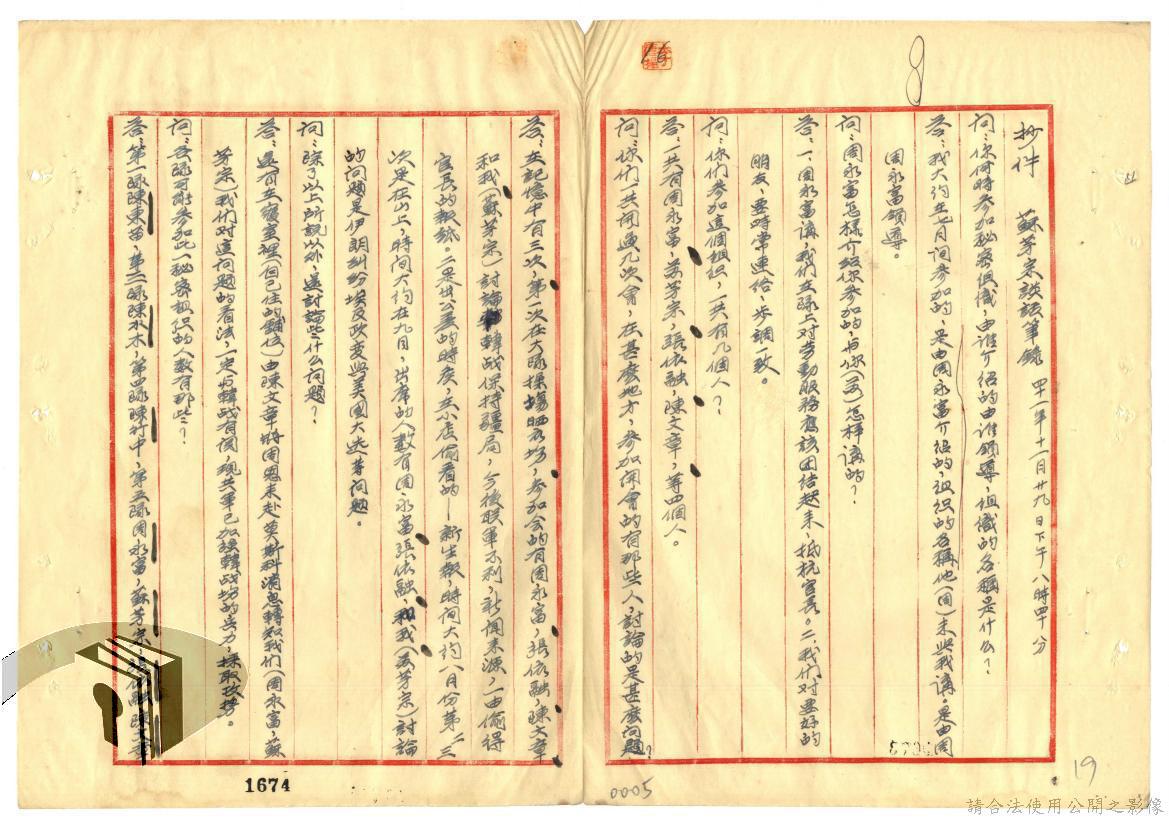 抄件 蘇芳宗談話筆錄 四十一年十一月廿九日下午八時四十分
問：你何時參加秘密組織，由誰介紹的由誰領導，組織的名稱是什么？
答：我大約在七月间參加的，是由周永富介紹的，组织的名稱他（周）未與我講。是由周
周永富領導。
問：周永富怎樣介紹你參加的，与你（蘇）怎样講的？
答：一、周永富講，我們在隊上對劳動服務應該团结起来，抵抗官長。二、我们对要好的
朋友，要時常連絡，步調一致。
问：你们參加這個組织，一共有几個人？
答：一共有周永富，蘇芳宗，張依融，陳文章，等四個人。
问：你们一共開過几次會，在甚麼地方，參加開會的有那些人，討論的是甚麼问題？
答：在記憶中有三次，第一次在大隊操場晒衣场，參加会的有周永富，張依融，陳文章
和我（蘇芳宗）討論韓战保持疆局，今後联軍不利，新闻来源，一由偷得
官長的報紙。二是出公差的時候，在小店偷看的—新生報，時间大约八月份第二三
次是在山上，時间大约在九月，出席的人数有周永富張依融，和我（蘇芳宗）討論
的问題是伊朗糾纷埃及政变與美國大选等问題。
问：除了以上所說以外，還討論些什么问題？
答：還有在寢室裡（自己住的鋪位）由陳文章將周恩来赴莫斯科消息轉知我们（周永富，蘇
芳宗）我们对這问題的看法，一定与韓战有関，現共軍已加強韓战场的兵力，採取攻势。
问：各隊可能參加此一秘密組织的人数有那些？
答：第一隊陳東華，第三隊陳水木，第四隊陳竹中，第五隊周永富，蘇芳宗，張依融陳文章
8
16
19
0005
1674
請合法使用公開之影像